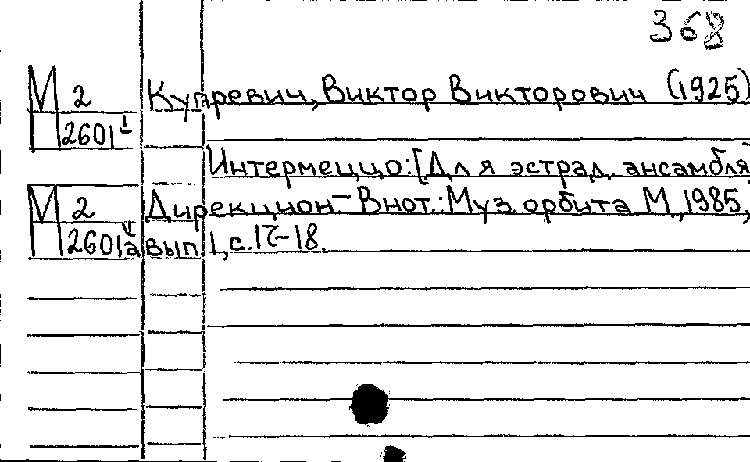 368
М 2 Купревич, Виктор Викторович (1925)
П 2601 I
Интермеццо: [Для эстрад. ансамбля]
М 2 Дирекцион.– В нот.: Муз. орбита М., 1985,
П 2601а вып 1, с. 17–18.